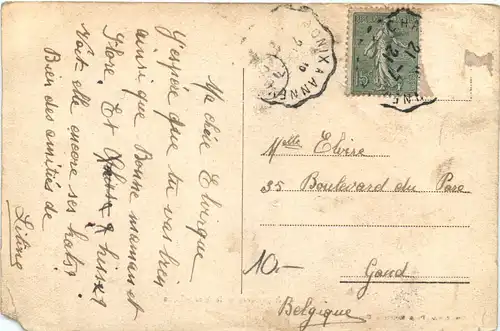 Ma chère Elvique
J'espère que tu vas bien
ainsi que Bonne maman et
Flore. Et
Voit elle encore ses
Bien des amitiés de
Liline
ONIX A ANNE
21
15
Melle Elvire
35 Boulevard du Parc
10-
Gand
Belgique